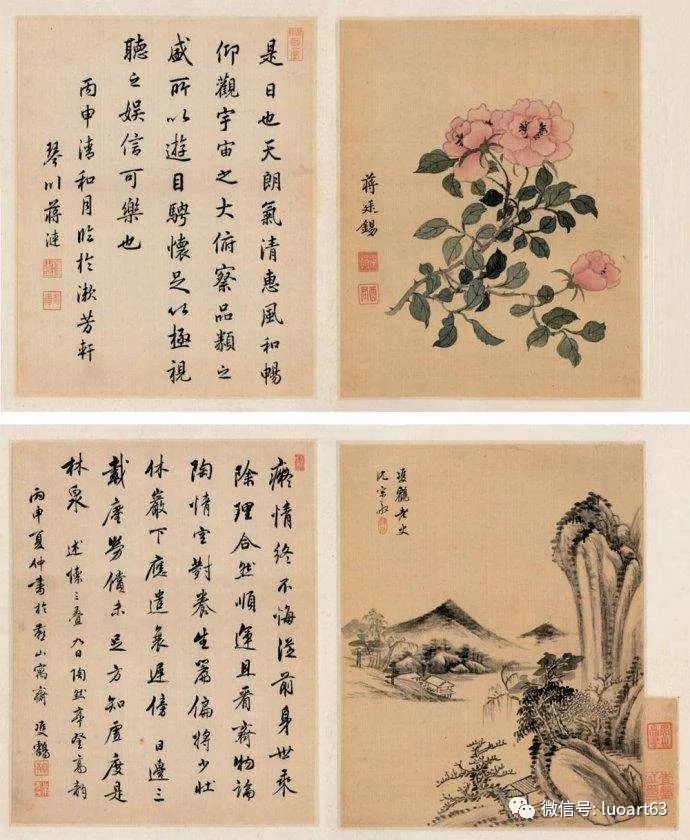 是日也天朗氣清惠風和暢
仰觀宇宙之大俯察品類之
盛所以遊目騁懷足以極視
聽之娛信可樂也
丙申清和月臨於漱芳軒
琴川蔣漣
蔣廷錫
癡情終不悔從前身世乘
除理合然順運且看齋物論
陶情對養生篇偏將少壯
休巖下應遣衰遲傍日邊三
塵勞償未足方知虛度是
林泉 述懷三疊九日陶然亭登高韵
丙申夏仲書於山寓齋 鶴
鶴老史
沈宗
微信号: luoart63